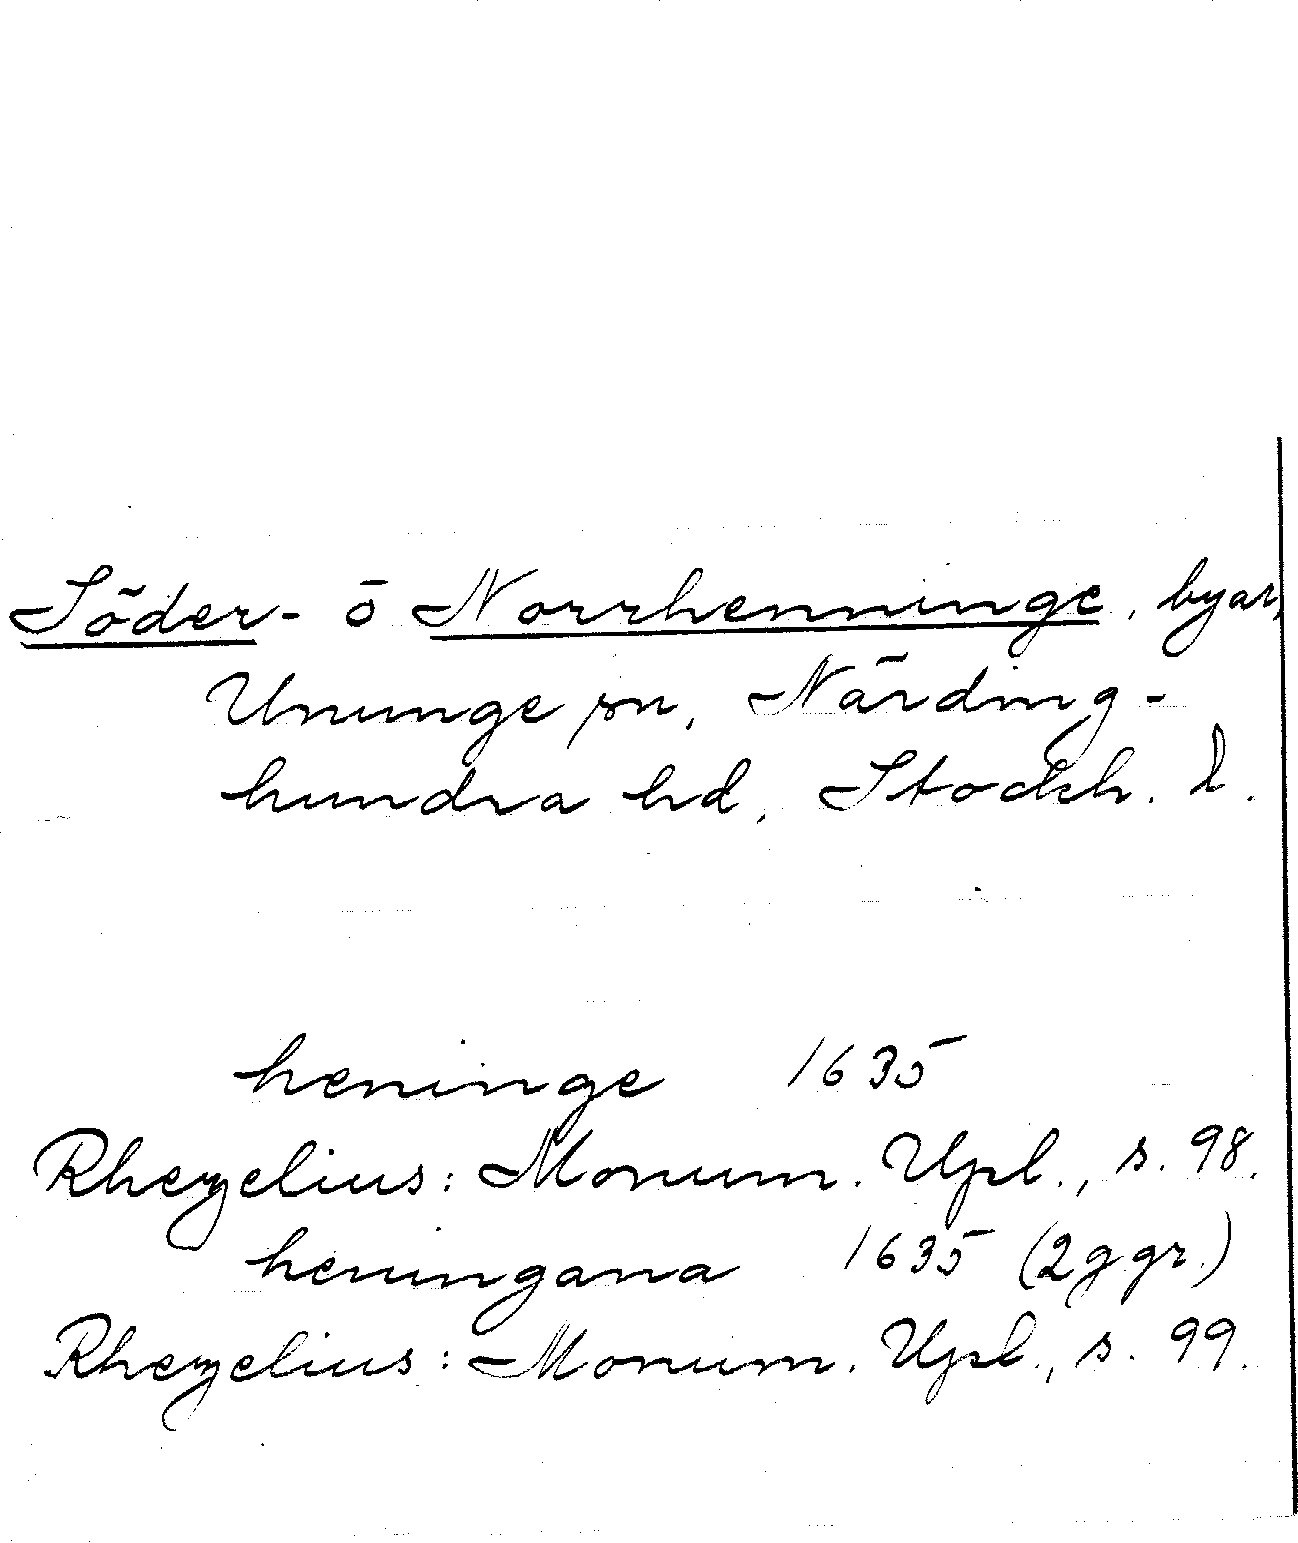 Söder- o Norrhenninge, byar,
Ununge sn, Närding-
hundra hd, Stockh. l.
heninge 1635
Rhezelius: Monum. Upl., s. 98.
heningana 1635 (2 ggr.)
Rhezelius: Monum. Upl., s. 99.